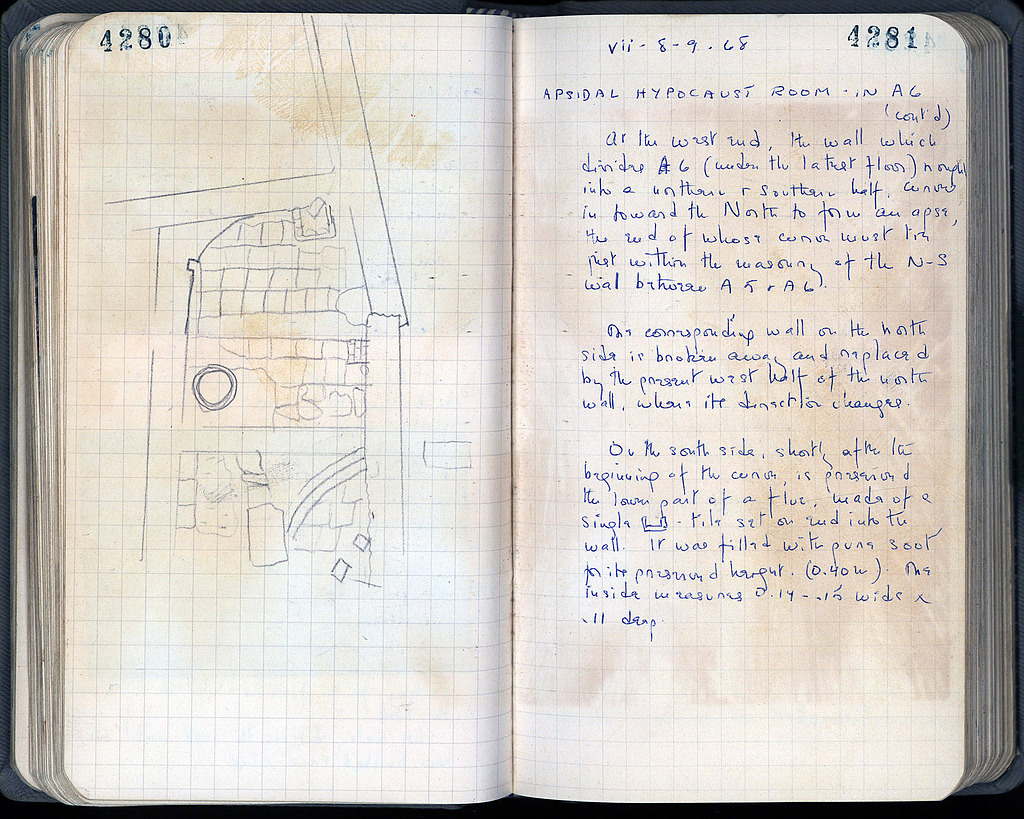 4280
4281
vii - 8 - 9 . 68
APSIDAL HYPOCAUST ROOM - IN A6
(cont'd)
At the west end, the wall which
divides A 6 (under the latest floor) roughly
into a northern & southern half, curves
in toward the North to form an apse,
the end of whose curve must lie
just within the masonry of the N-S
wall between A 5 & A 6.
The corresponding wall on the north
side is broken away and replaced
by the present west half of the north
wall, where its direction changes.
On the south side, shortly after the
beginning of the curve, is preserved
the lower part of a flue, made of a
single - tile set on end into the
wall. It was filled with pure soot
for its preserved height. (0.40 m). The
inside measures 0.14 - .15 wide x
.11 deep.